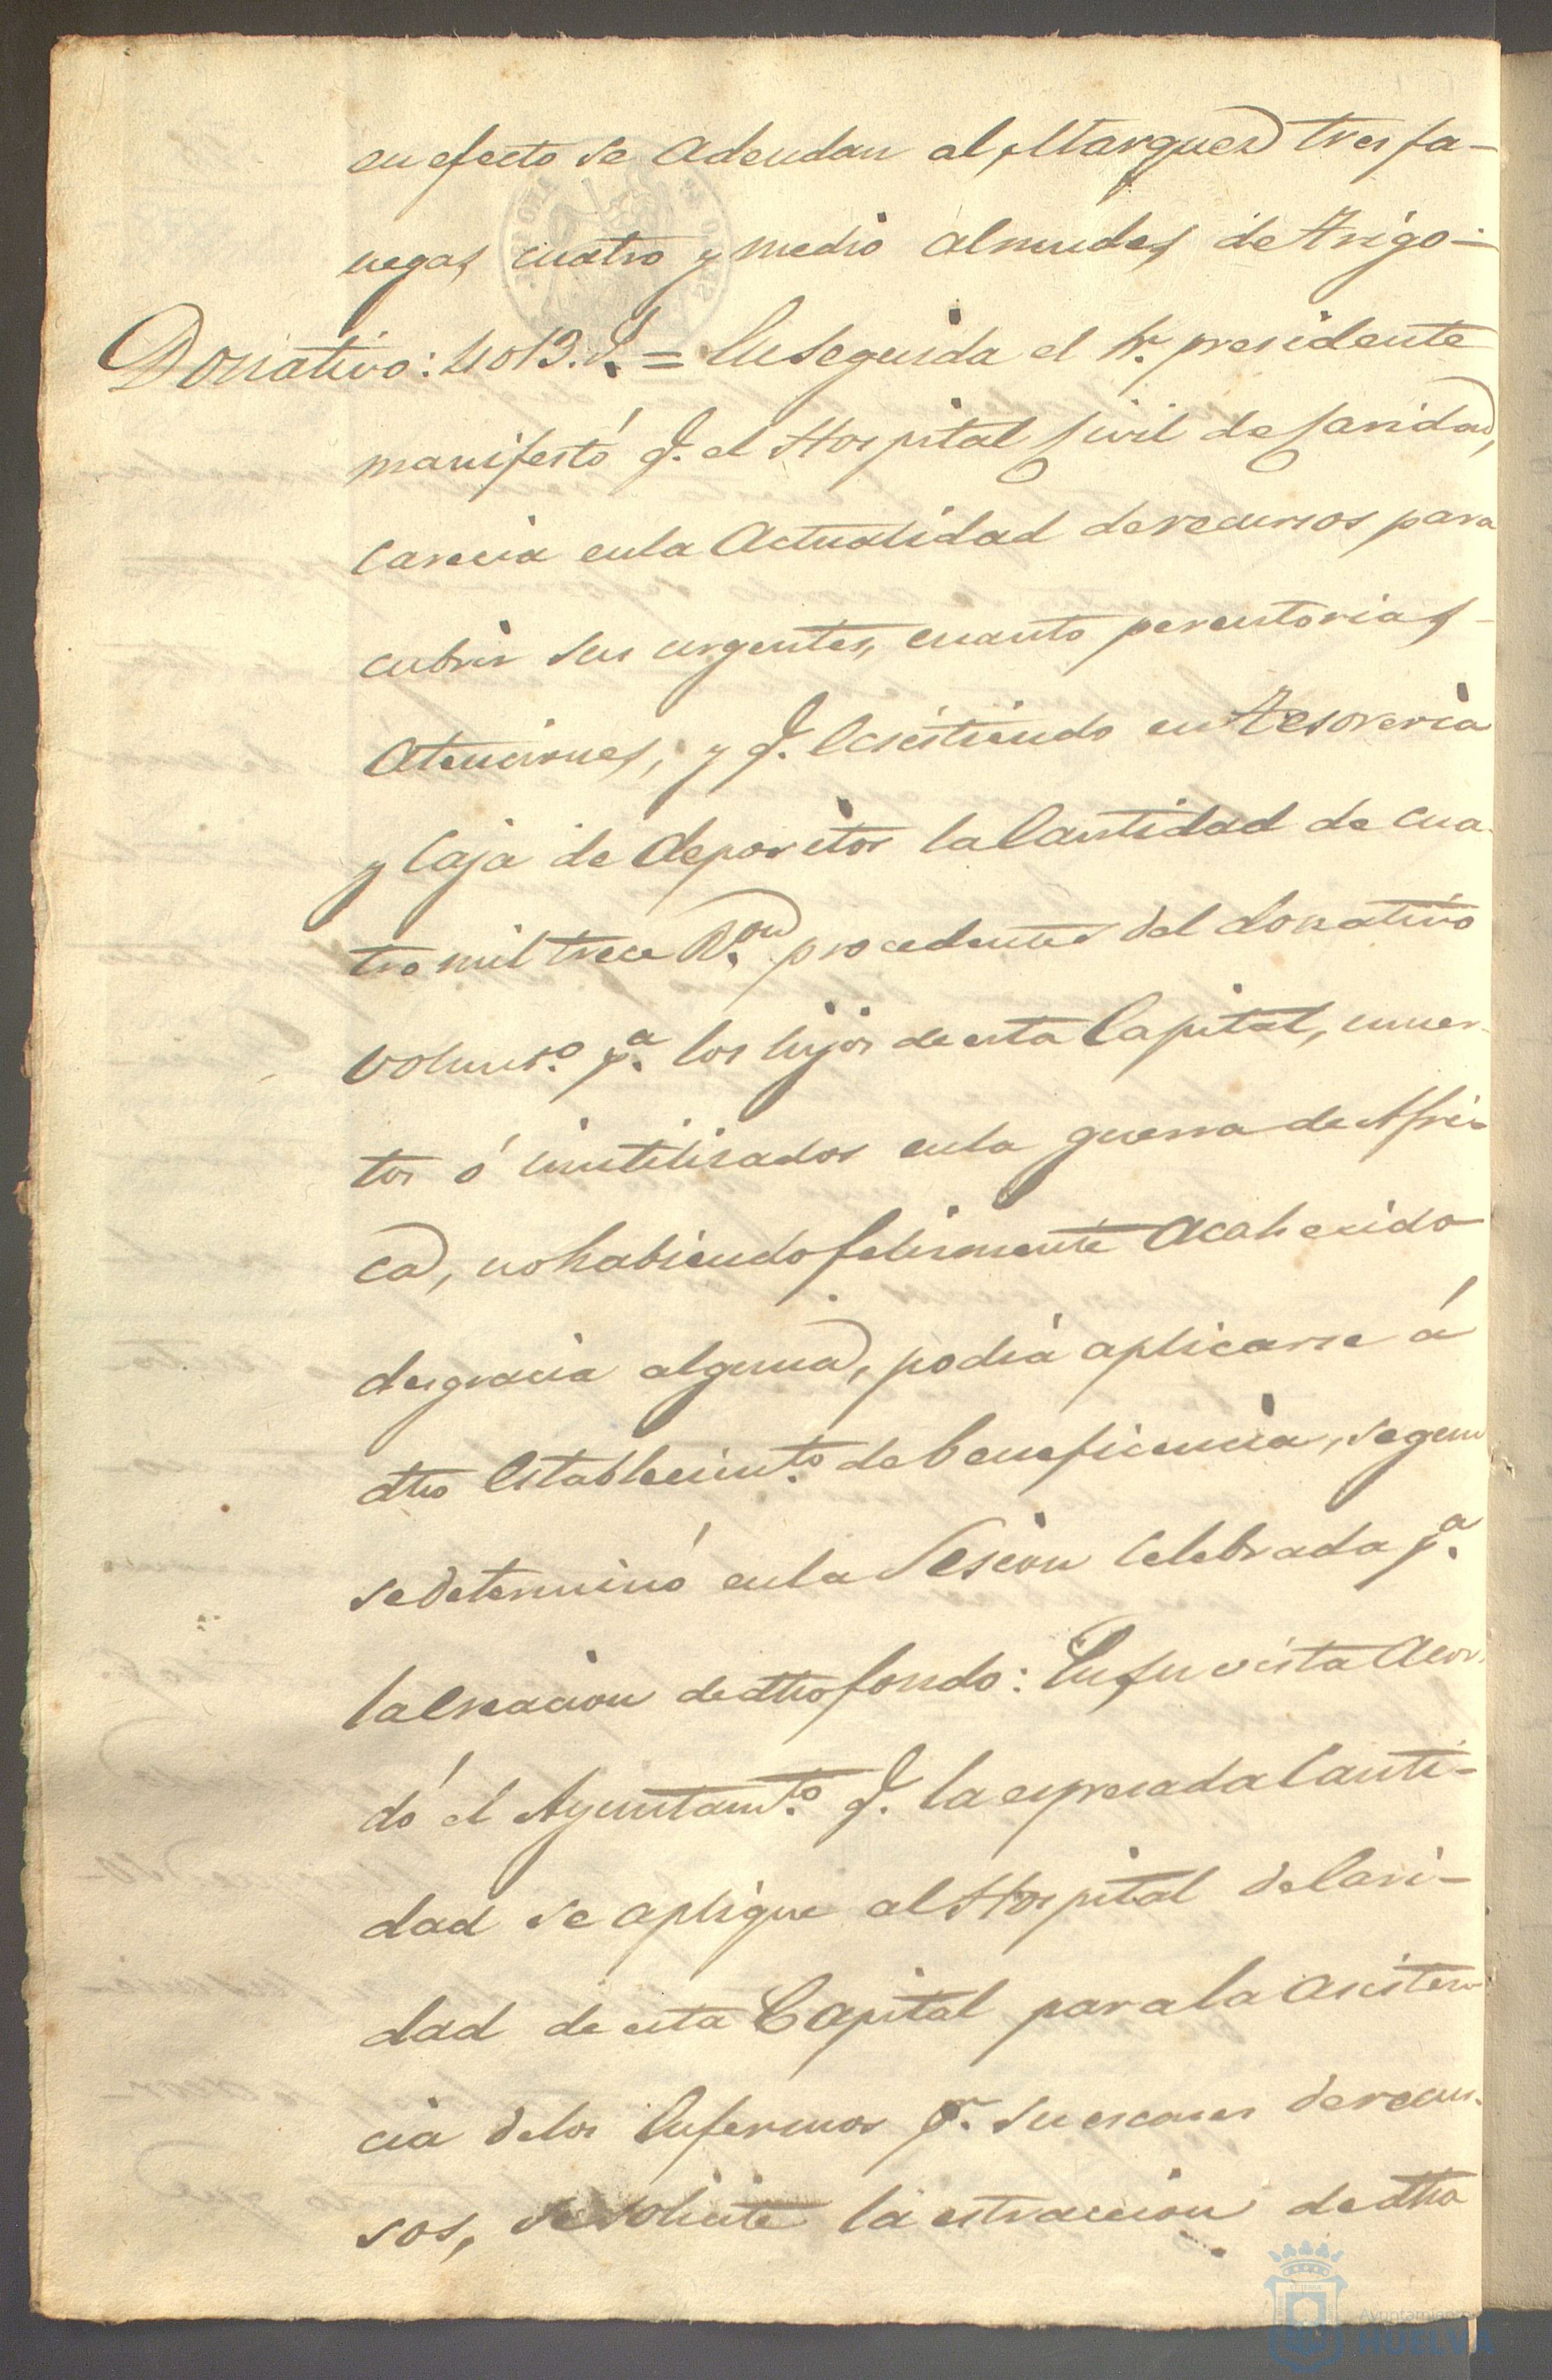 en efecto se Adeudan al Marques tres fa-
negas, cuatro y medio almudes de trigo-
Donativo: 4013. = En seguida el Sr. presidente
manifestó q. el Hospital Sivil de Caridad,
Carecia en la Actualidad de recursos para
cubrir sus urgentes, cuanto perentorias-
Atenciones, y q. Ecsistiendo en Tesoreria
y Caja de depositos la Cantidad de cua-
tro mil trece R.on procedentes del donativo
volunt.o p.a los hijos de esta Capital, muer-
tos ó inutilisados en la guerra de Afri-
ca, no habiendo felismente Acahecido
desgracia alguna, podia aplicarse á
dho Establecim.to de beneficencia, segun
se determinó en la Sesion Celebrada p.a
la Creacion de dho fondo: En su vista Acor-
dó el Ayuntam.to q. la espresada Canti-
dad se aplique al Hospital de Cari-
dad de esta Capital para la Asisten-
cia de los Enfermos p.r su escases de recur-
sos, se solicite la estraccion de dha
Ayuntamiento
HUELVA